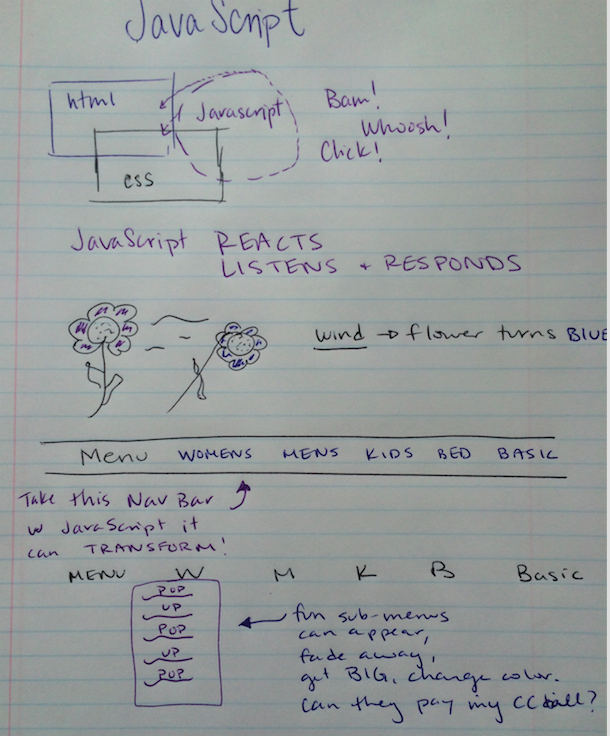 JavaScript
html
Javascript
css
Bam!
Whoosh!
Click!
JavaScript REACTS
LISTENS + RESPONDS
wind → flower turns BLUE
Menu WOMENS MENS KIDS BED BASIC
Take this Nav Bar
w JavaScript it
can TRANSFORM!
MENU W M K B Basic
POP
UP
POP
UP
POP
fun sub-menus
can appear,
fade away,
get BIG, change color.
can they pay my CC bill?